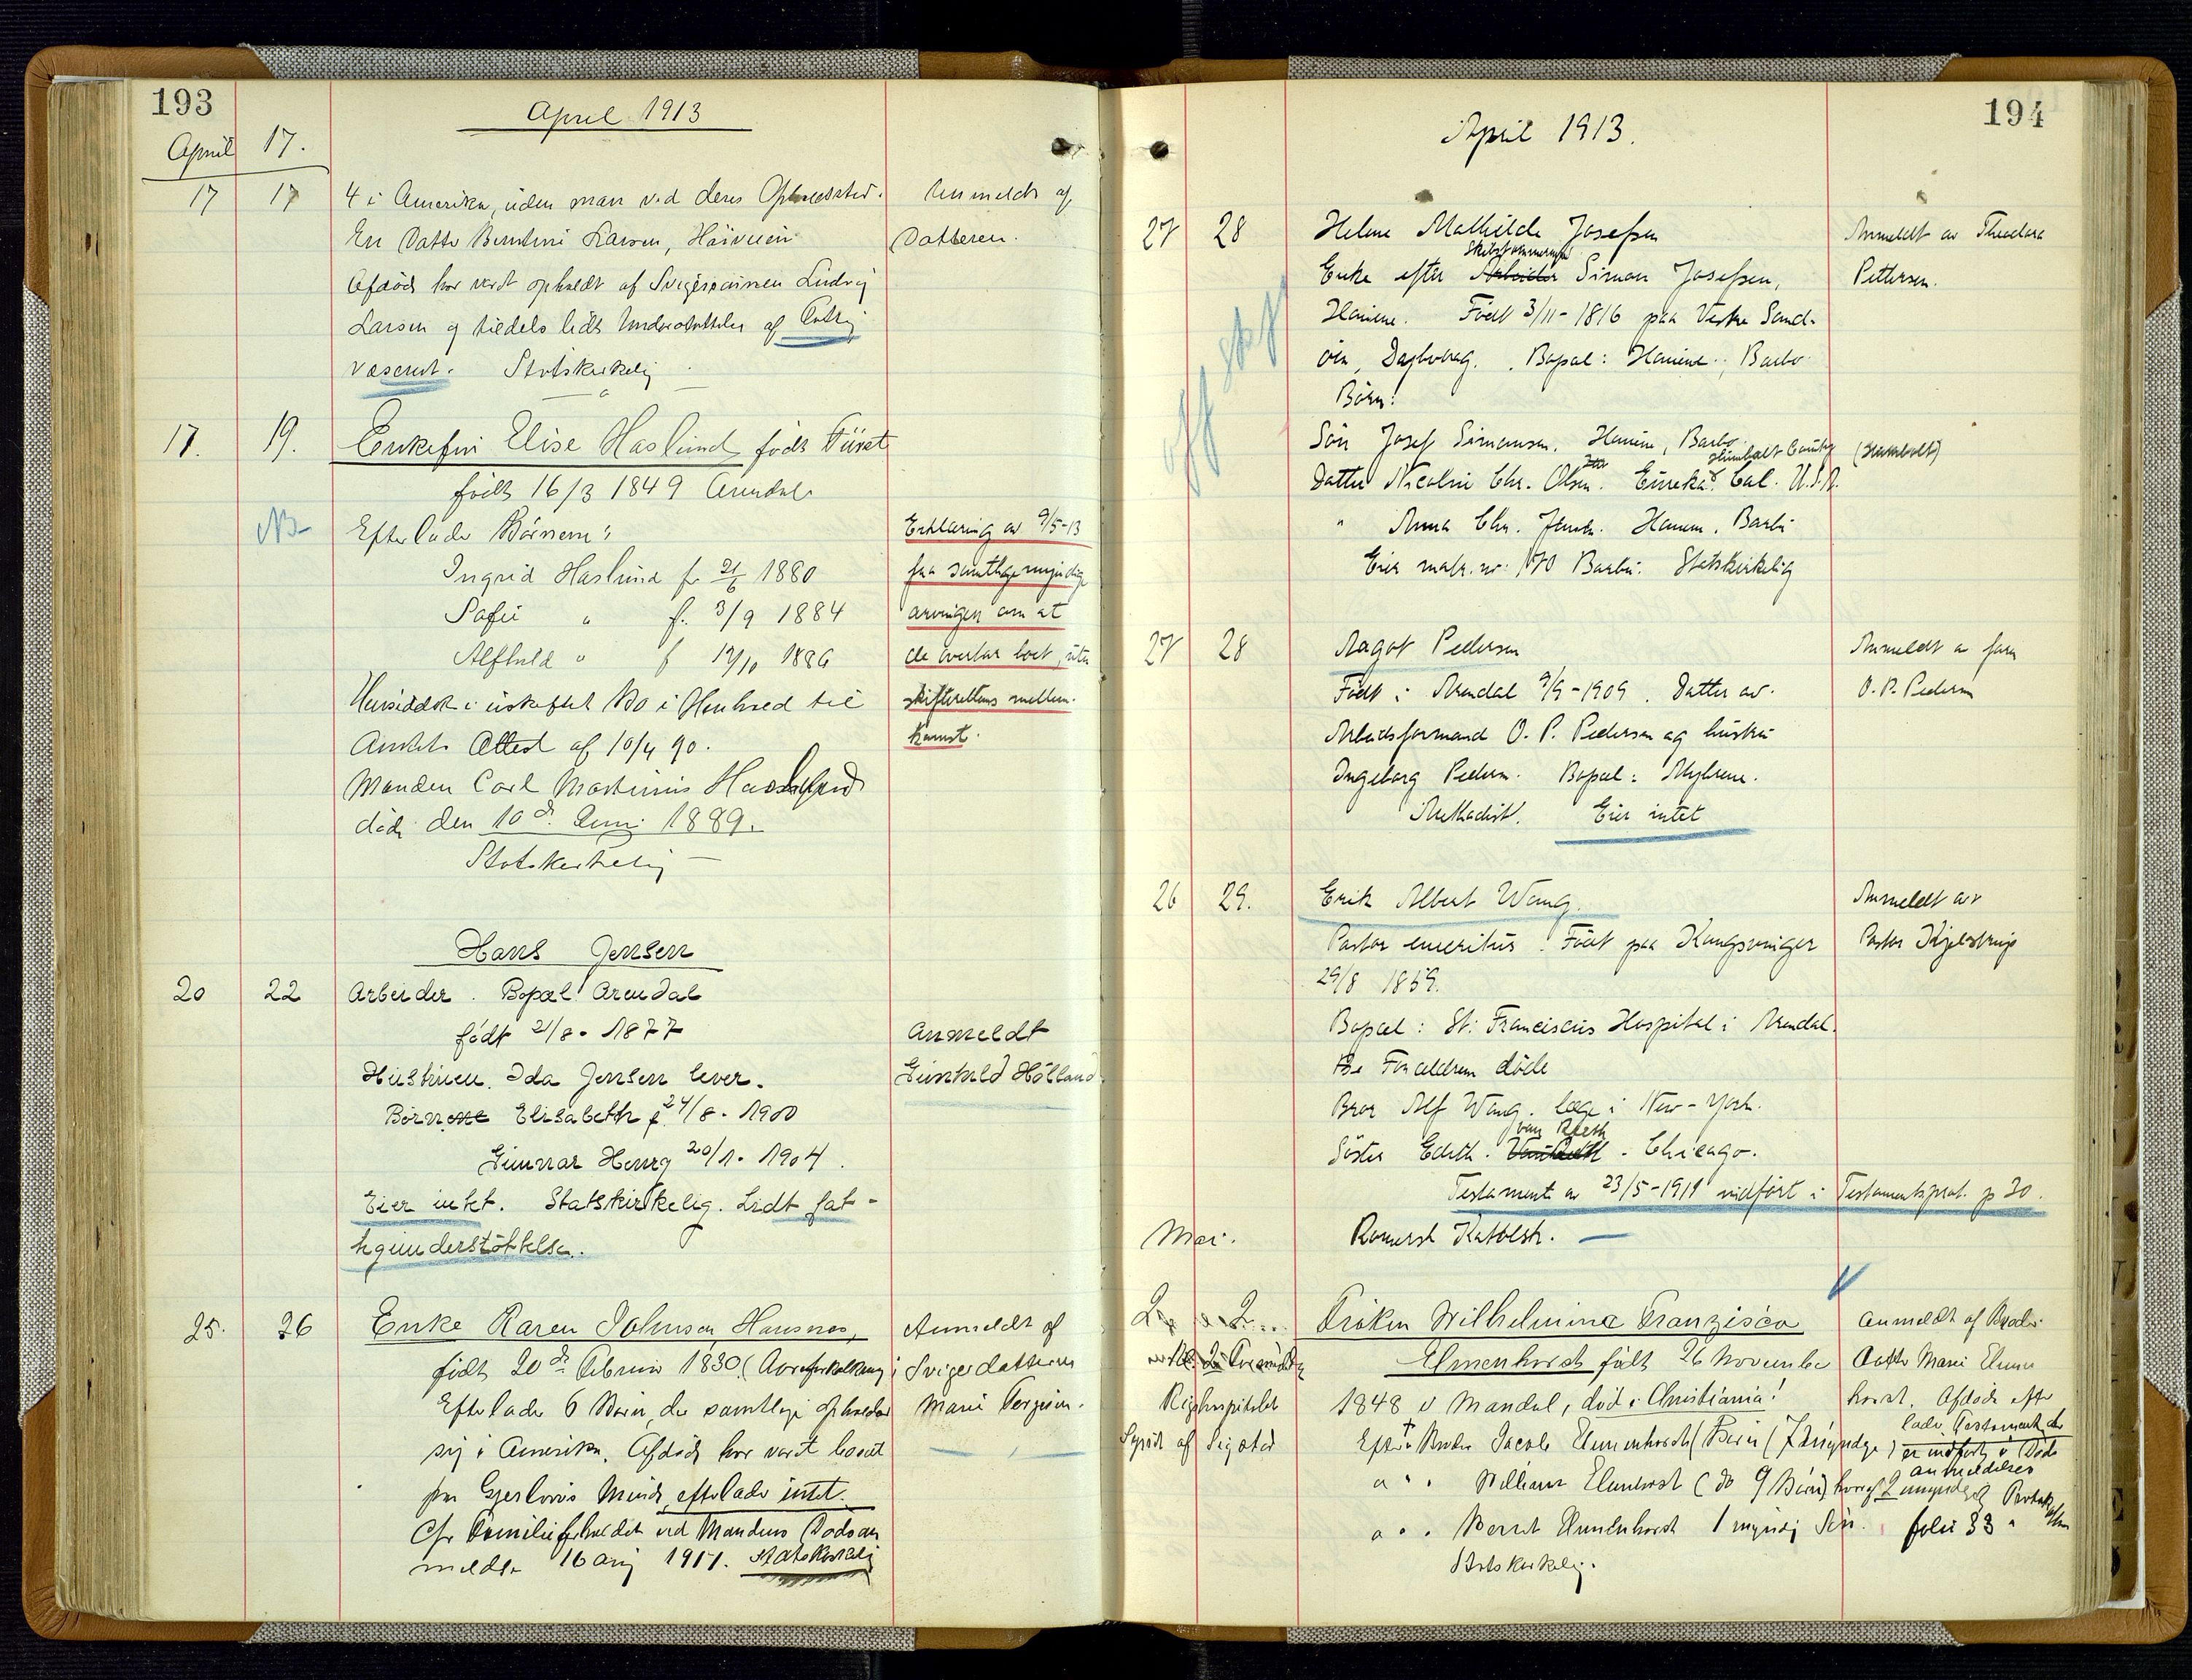 193
April 1913
April 17.
17 17 4 i Amerika, uden man ved deres Opholdssted. Anmeldt af
En Datter Berntine Larsen, Datteren.
Afdøde har været opholdt af Svigersønnen Ludvig
Larsen og tildels lidt Understøttelse af
væsenet. Statskirkelig
17. 19. Enkefru Elise Haslund født
født 16/3 1849 Arendal
NB Efterlader Børnene: Erklæring av 9/5-13
Ingrid Haslund f. 21/6 1880 fra samtlige myndige
" f. 3/9 1884 arvinger om at
Alfhild " f 1886 de overtar boet, uten
Hensiddet i uskiftet Bo i Henhold til skifterettens mellem-
Attest af 10/4 90. komst.
Manden Carl Martinius Haslund
død den 10de Juni 1889.
Statskirkelig
Hans Jensen
20 22 Arbeider. Bopæl Arendal
født 21/8. 1877 Anmeldt
Hustruen Ida Jensen lever. Gunhild Hölland
Børnene Elisabeth f. 24/8. 1900
Gunnar Henry 20/1. 1904.
Eier intet. Statskirkelig. Lidt fat-
tigunderstøttelse.
25. 26 Enke Karen Johnsen Hausnes, Anmeldt af
født 20de Februar 1830 (Aareforkalkning) Svigerdatteren
Efterlader 6 Børn, der samtlige opholder Marie
sig i Amerika. Afdøde har været bosat
paa Gjerløvs Minde, efterlader intet.
Cfr Familieforholdet ved Mandens Dødsan
meldelse 16 aug 1911. Statskirkelig
194
April 1913.
27 28 Helene Mathilde Josefsen Anmeldt av Theodora
Skibstømmermand
Enke efter Arbeider Simon Josefsen, Pettersen.
Havene. Født 3/11-1816 paa Vestre Sand-
øen, Dypvaag. Bopæl: Havene, Barbo
Børn:
Søn Josef Simonsen. Havene, Barbo.
Humbolt County (Humboldt)
Datter Nicoline Chr. Olsen. Eureka Cal. U.S.A.
" Anna Chr. Havene. Barbu
Eier matr. nr. 170 Barbu. Statskirkelig
27 28 Aagot Pedersen Anmeldt av faren
Født i Arendal 9/9-1909. Datter av O. P. Pedersen
Arbeidsformand O. P. Pedersen og hustru
Ingeborg Pedersen. Bopæl: Myrene.
Methodist. Eier intet
26 29. Erik Albert Wang. Anmeldt av
Pastor emeritus. Født paa Kongsvinger Pastor Kjelstrup
29/8 1859.
Bopæl: St: Franciscus Hospital i Arendal.
Forældrene døde
Bror Alf Wang. læge i New-York.
Søster Edith. van - Chicago.
Testament av 23/5-1911 indført i Testamentsprot. p 30.
Romersk Katolsk.
Mai.
2 2 Frøken Wilhelmine Franzisca Anmeldt af Broder
Elmenhorst født 26 November Datter Marie Elmen
Righospitalet 1848 i Mandal, død i Christiania! horst. Afdøde efter
lader Testament der
Efter Broder Jacob Elmenhorst er indført i Døds
anmeldelses
" " William Elmenhorst (do 9 Børn) hvoraf 2 umyndige Protokollen
" " Bernt Elmenhorst 1 myndig Søn. folio 33
Statskirkelig.